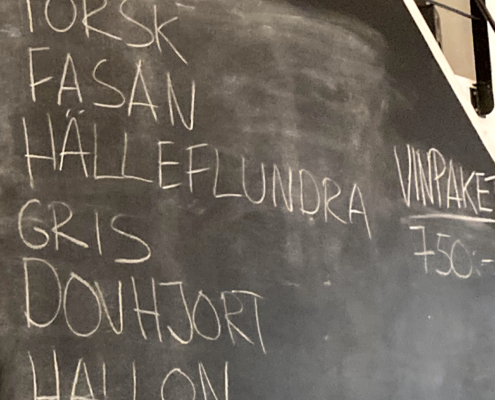 TORSK
FASAN
HÄLLEFLUNDRA
GRIS
DOVHJORT
HALLON
VINPAKET
750:-